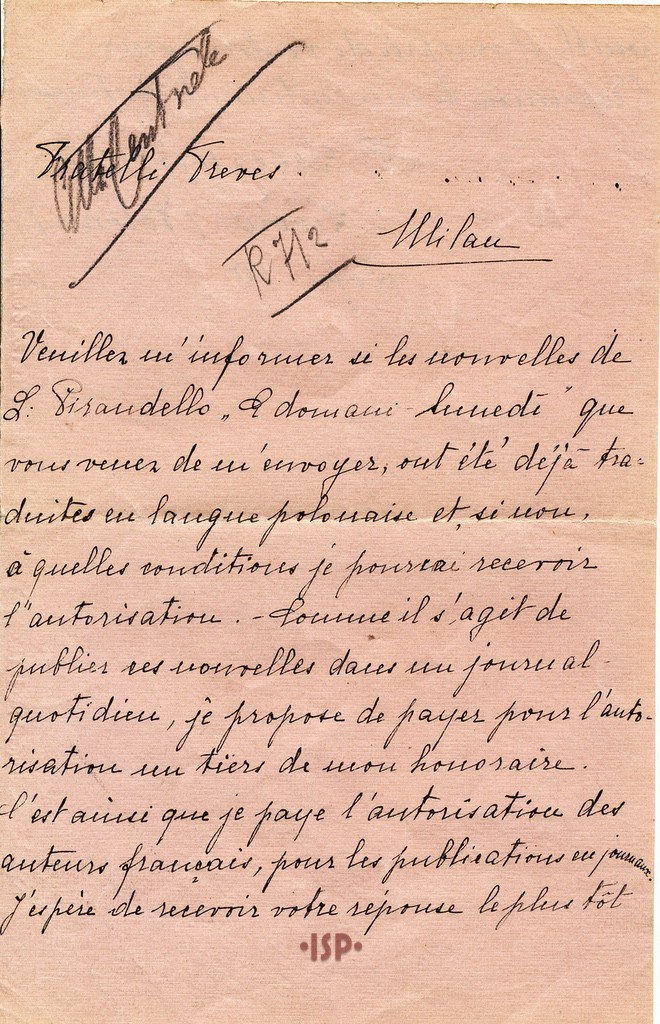 Fratelli Treves.
R 7/12
Milan
Veuillez m'informer si les nouvelles de
L. Pirandello „E domani - lunedi" que
vous venez de m'envoyer, ont été déjà tra=
duites en langue polonaise et, si non,
à quelles conditions je pourrai recevoir
l'autorisation. - Comme il s'agit de
publier ces nouvelles dans un journal
quotidien, je propose de payer pour l'auto-
risation un tiers de mon honoraire.
C'est ainsi que je paye l'autorisation des
auteurs français, pour les publications en journaux.
J'espère de recevoir votre réponse le plus tôt
•ISP•